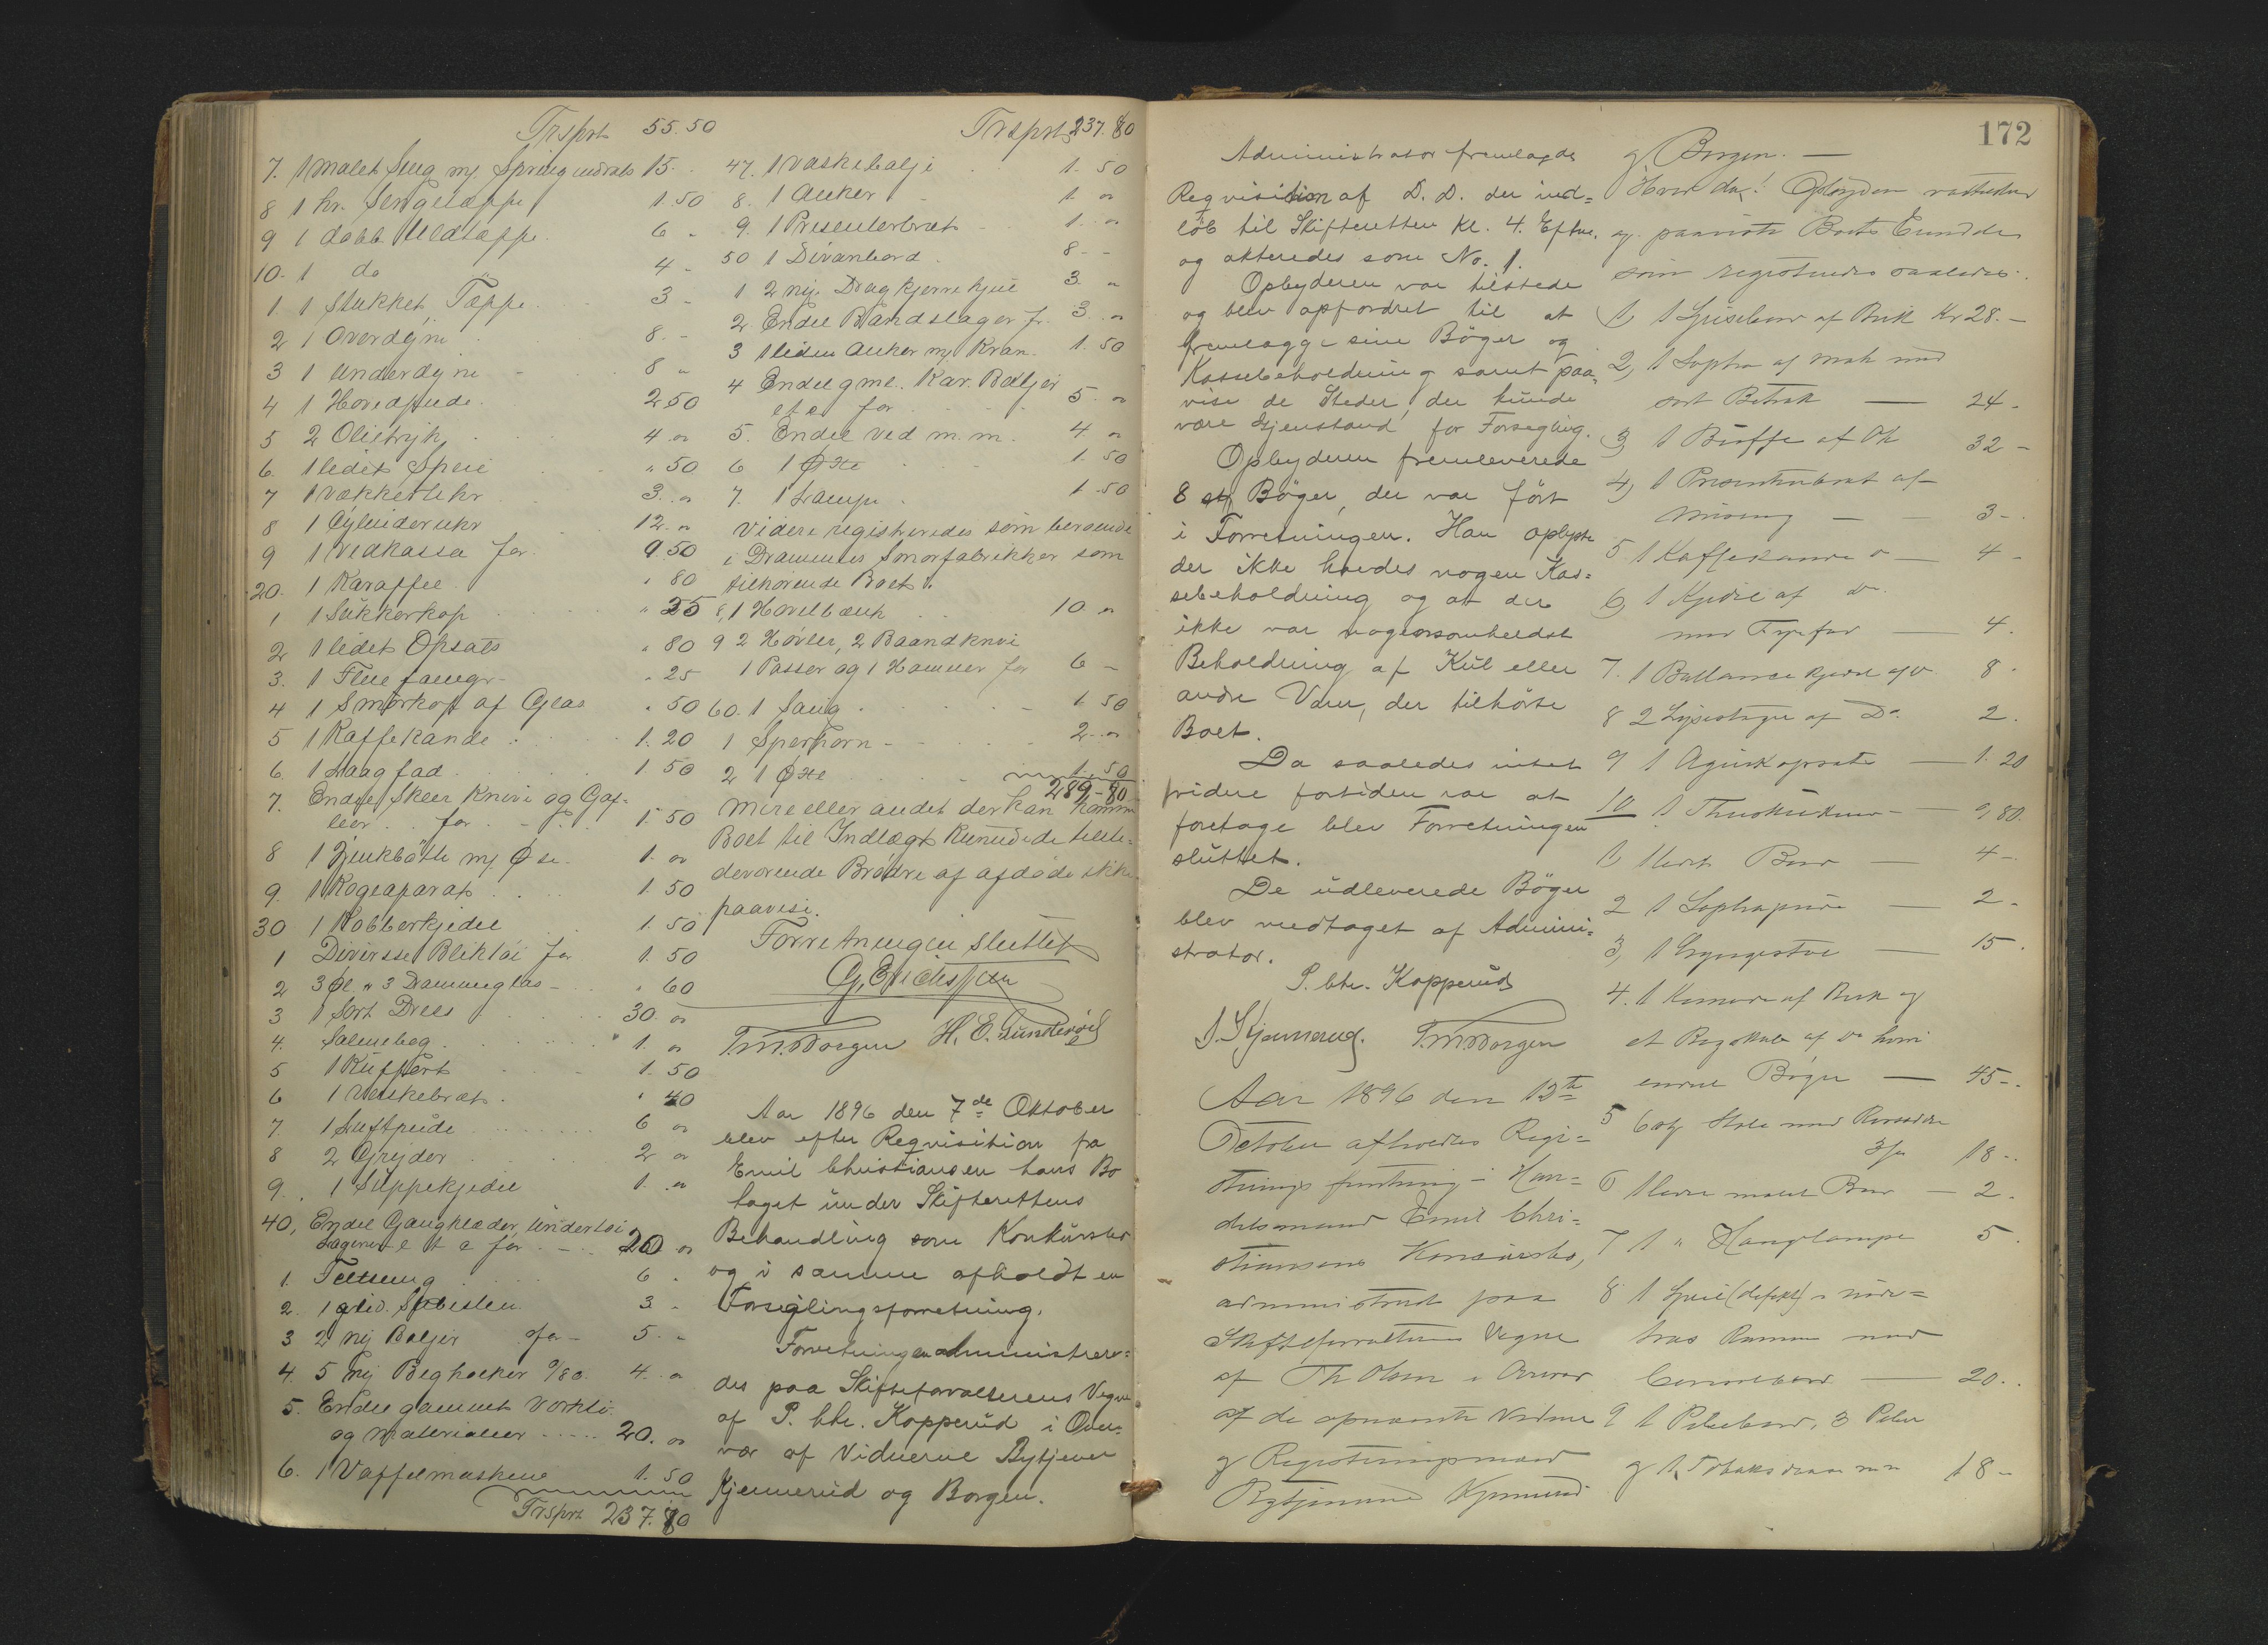 Trsprt 55.50
7. 1 malet Seng m/ Springmadrats 15. "
8 1 hr. Sengetæppe 1.50
9 1 dobb. Uldtæppe 6 "
10. 1 do 4 "
1 1 Stukket Tæppe 3 "
2 1 Overdyne 8. "
3 1 Underdyne 8 "
4 1 Hovedpude 2.50
5 2 Olietryk 4. "
6. 1 lidet Speil " 50
7 1 VækkerUhr 3. "
8 1 Cylinderuhr 12. "
9 1 Vedkasse for 9.50
20. 1 Karaffel " 80
1 1 Sukkerkop " 35
2 1 lidet Opsats " 80
3. 1 Fluefanger " 25
4 1 Smørkop af Glas " 50
5 1 Kaffekande 1.20
6. 1 Laagfad 1.50
7. Endel Skeer Knive og Gaf-
ler for 1.50
8 1 Zinkbøtte m/ Øse 1. "
9. 1 Kogeaparat 1.50
30 1 Kobberkjedel 1.50
1 Diverse Bliktøi for 1.50
2 3 Øl " 3 Dramglas " 60
3 1 Sort Dress 30. "
4. Salmebog 1. "
5 1 Kuffert 1.50
6 1 Vaskebræt " 40
7 1 Luftpude 6 "
8 2 Gryder 2 "
9. 1 Suppekjedel 1. "
40, Endel Gangklæder, Undertøi
Lagener etc for 20 "
1. Feltseng 6 "
2. 1 glid. 3. "
3 2 ny Baljer for 5. "
4. 5 ny Begholker 0/80 4. "
5. Endel gammelt Værktøi
og Materialier 20. "
6. 1 Vaffelmaskine 1.50
Trsprt 237.80
Trsprt 237.80
47. 1 Vaskebalje 1.50
8. 1 Anker 1. "
9. 1 Presenterbræt 1. "
50 1 Divanbord 8. "
1 2 nye Dragkjerrehjul 3. "
2 Endel Baandstager for 3. "
3 1 liden Anker m/ Kran 1.50
4 Endel gml. Kar. Baljer
etc for 5. "
5. Endel Ved m.m. 4 "
6 1 Øxe 1.50
7. 1 Lampe 1.50
Videre registreredes som beroende
i Drammens Smørfabrikker som
tilhørende Boet:
8, 1 Høvelbænk 10. "
9 2 Høvler, 2 Baandknive
1 Passer og 1 Hammer for 6 -
60. 1 Saug 1.50
1 Sperhorn 2. "
2 1 Øxe 1.50
289-80
Mere eller andet der kan komme
Boet til Indtægt kunde de tilste-
deværende Brødre af afdøde ikke
paavise.
Forretningen sluttet
G. Erichssen
T. M. Borgen H. E. Sunderøel
Aar 1896 den 7de Oktober
blev efter Reqvisition fra
Emil Christiansen hans Bo
taget under Skifterettens
Behandling som Konkursbo
og i samme afholdt en
Forseglingsforretning.
Forretningen administrere-
des paa Skifteforvalterens Vegne
af P. Chr. Kopperud i Over-
vær af Vidnerne Bytjener
Kjennerud og Borgen.
172
Administrator fremlagde
Reqvisition af D. D. der ind=
løb til Skifteretten Kl. 4. Efterm.
og akteredes som No. 1.
Opbyderen var tilstede
og blev opfordret til at
fremlægge sine Bøger og
Kassebeholdning samt paa=
vise de Steder, der kunde
være Gjenstand for Forsegling.
Opbyderen fremleverede
8 stk Bøger, der var ført
i Forretningen. Han oplyste
der ikke havdes nogen Kas=
sebeholdning og at der
ikke var nogensomhelst
Beholdning af Kul eller
andre Varer, der tilhørte
Boet.
Da saaledes intet
videre fortiden var at
foretage blev Forretningen
sluttet.
De udleverede Bøger
blev modtaget af Admini=
strator.
P. Chr. Kopperud
J. Kjennerud. T. M. Borgen
Aar 1896 den 13de
October afholdtes Regi=
strerings forretning i Han=
delsmand Emil Chri=
stiansens Konkursbo,
administreret paa
Skifteforvalterens Vegne
af Th Olsen i Overvær
af de opnævnte Vidner
og Registreringsmænd
Bytjenerne Kjennerud
og Borgen. —
Hvorda! Opbyderen var tilstede
og paaviste Boets Eiendele
som registreredes saaledes:
1, 1 Spisebord af Birk Kr 28. -
2, 1 Sopha af Mah med
sort Betræk — 24 -
3, 1 Buffe af Ek 32 -
4, 1 Presenterbræt af
Messing — 3 -
5 1 Kaffekande " — 4 -
6, 1 Kjedel af do
med Fyrfad — 4.
7. 1 Ballance kjedel af do 8 -
8 2 Lysestager af Do 2.
9 1 Agurkopsats — 1.20
10 1 — ",80
1, 1 lidet Bord — 4 -
2 1 Sophapude — 2 -
3, 1 Gyngestol — 15.
4. 1 Komode af Birk og
et Bogskab af do hvori
endel Bøger — 45 -
5 6 stk Stole med
3/- 18 -
6 1 lidet malet Bord — 2.
7 1 " Hanglampe 5.
8 1 Speil (defekt) i nødde=
træs Ramme med
Consolbord — 20.
9 1 Pibebord, 3 Piber
og 1 18 -